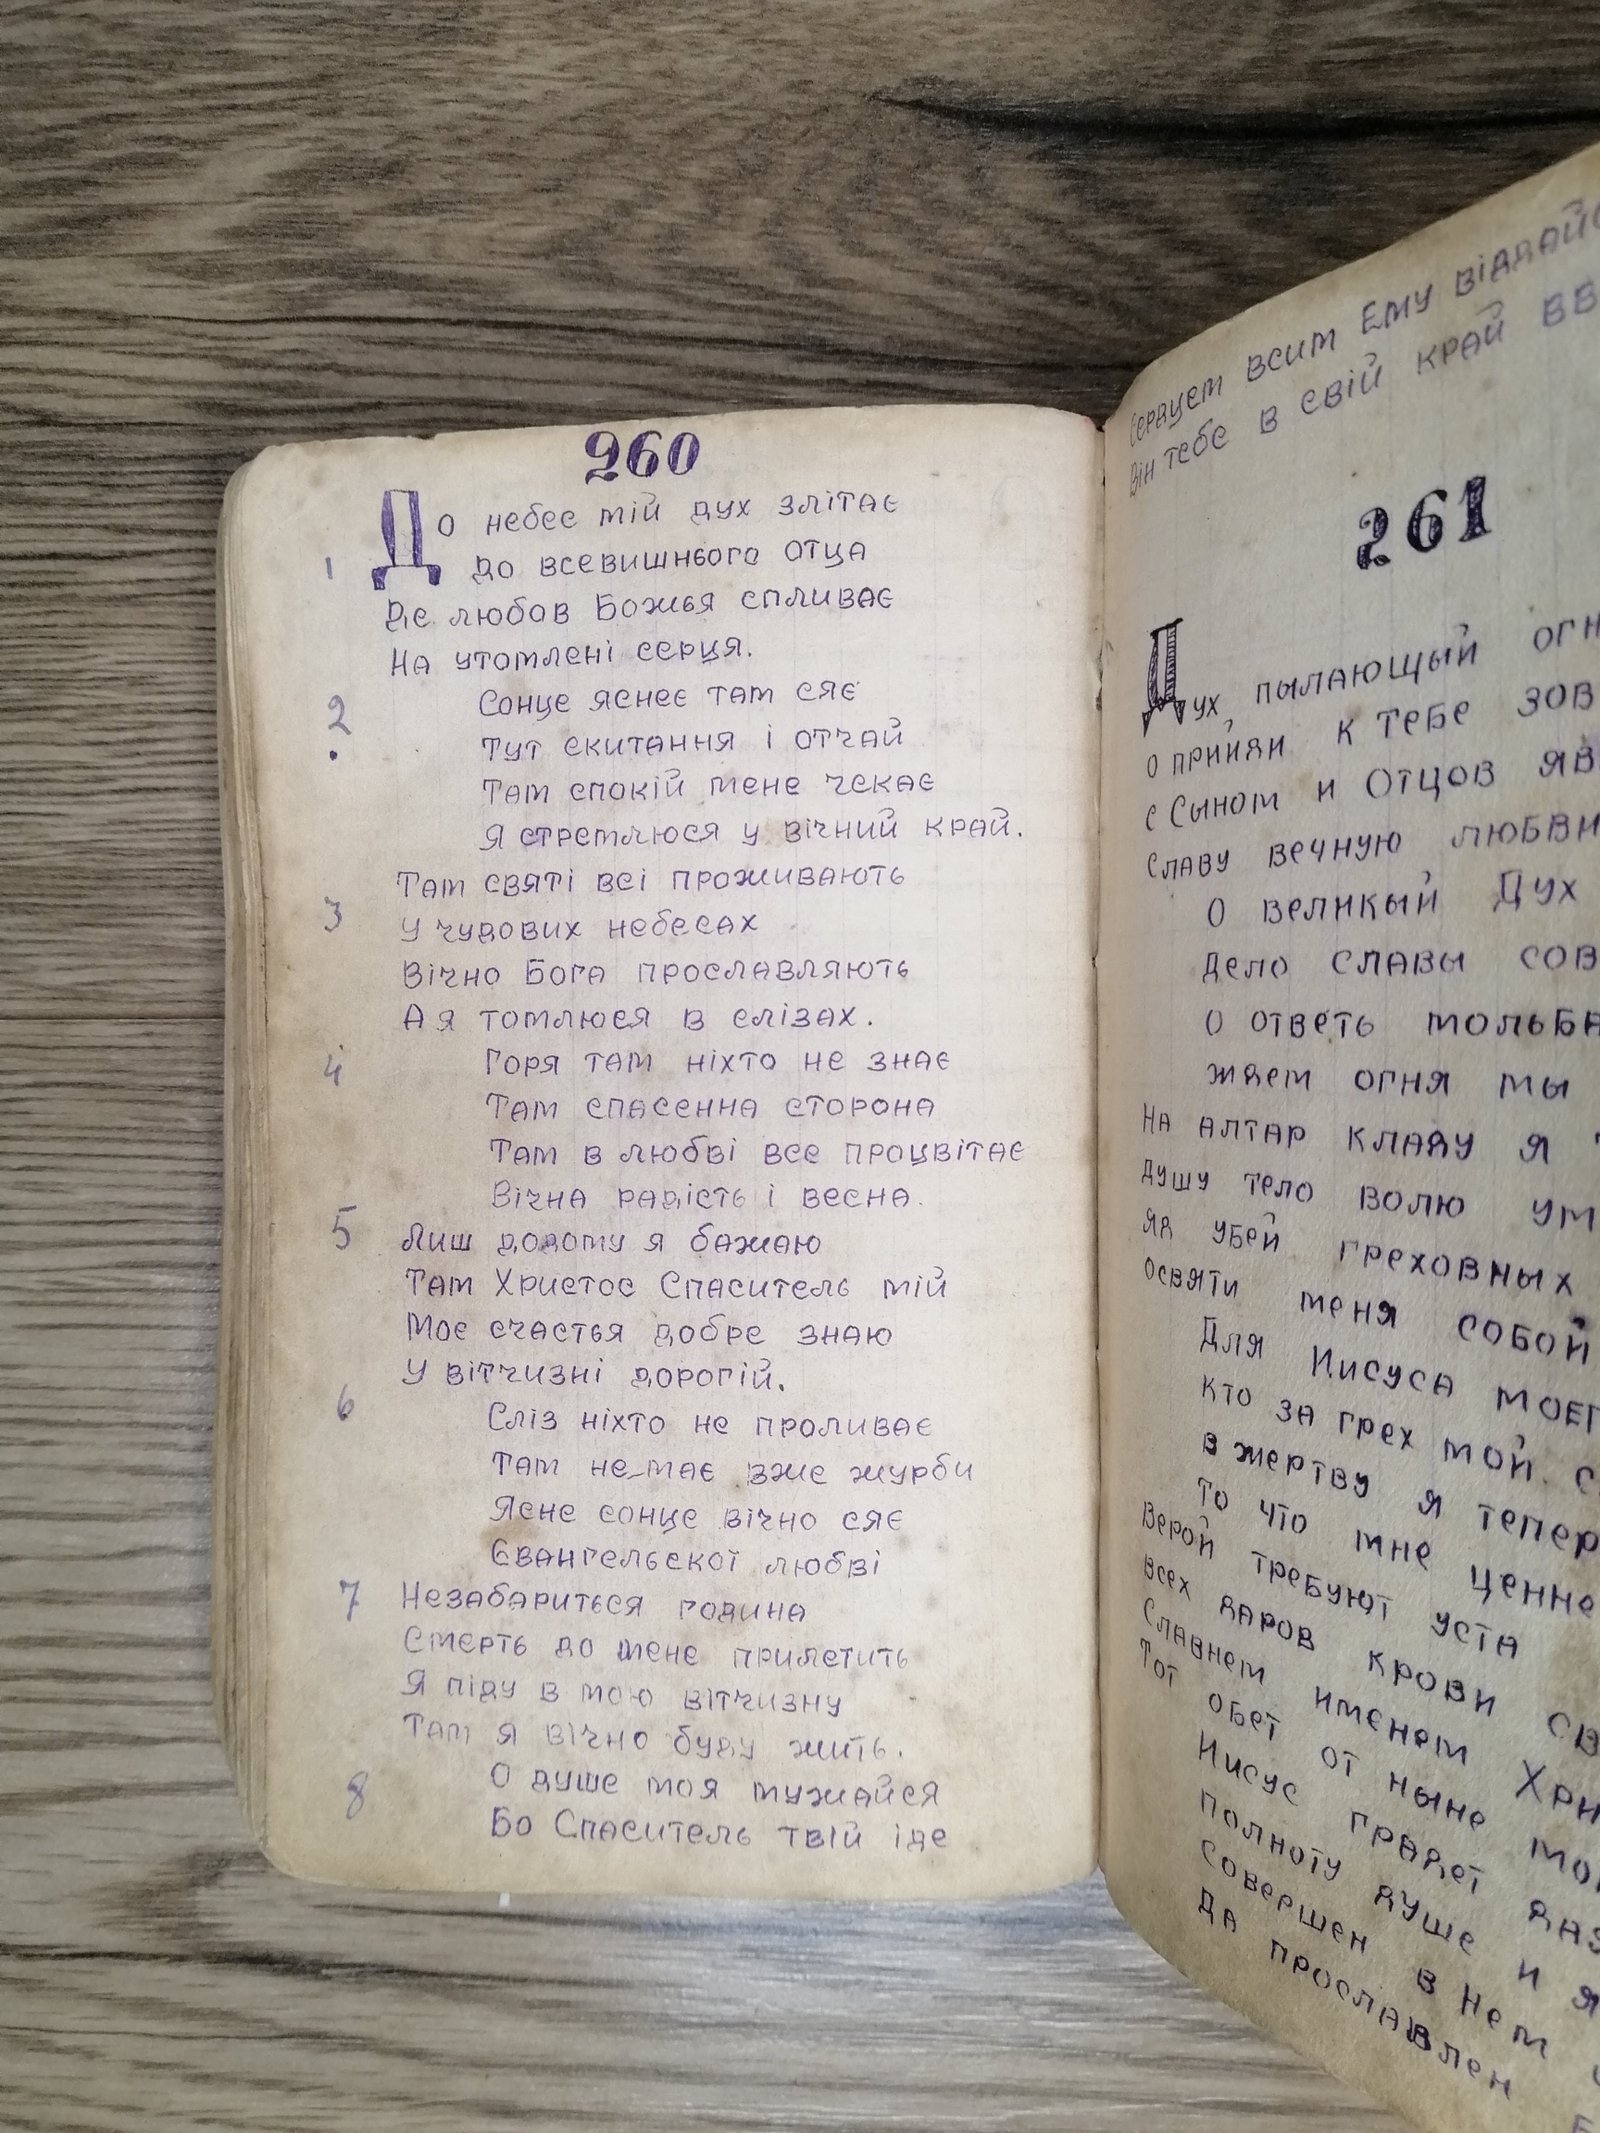 260
До небес мій дух злітає
1 до всевишнього отца
Де любов Божья спливає
На утомлені серця.
2 Сонце яснеє там сяє
Тут скитання і отчай
Там спокій мене чекає
Я стремлюся у вічний край.
Там святі всі проживають
3 У чудових небесах
Вічно Бога прославляють
А я томлюся в слізах.
4 Горя там ніхто не знає
Там спасенна сторона
Там в любві все процвітає
Вічна радість і весна.
5 Лиш додому я бажаю
Там Христос Спаситель мій
Моє счастья добре знаю
У вітчизні дорогій.
6 Сліз ніхто не проливає
Там не має вже журби
Ясне сонце вічно сяє
Євангельскої любві
7 Незабариться година
Смерть до мене прилетить
Я піду в мою вітчизну
Там я вічно буду жить.
8 О душе моя мужайся
Бо Спаситель твій іде
Серцем всим Ему
Він тебе в свій край
261
Дух пылающий
О прийди к тебе
с Сыном и Отцов
Славу вечную
О великый Дух
дело славы
О ответь
ждем огня мы
На алтар кладу я
душу тело волю
яд убей греховных
освяти меня собой
Для Иисуса
кто за грех мой
в жертву я
то что мне
Верой требуют уста
всех даров крови
Славнем именем
Тот обет от ныне
Иисус градет
полноту душе и
Совершен в Нем
Да прославлен